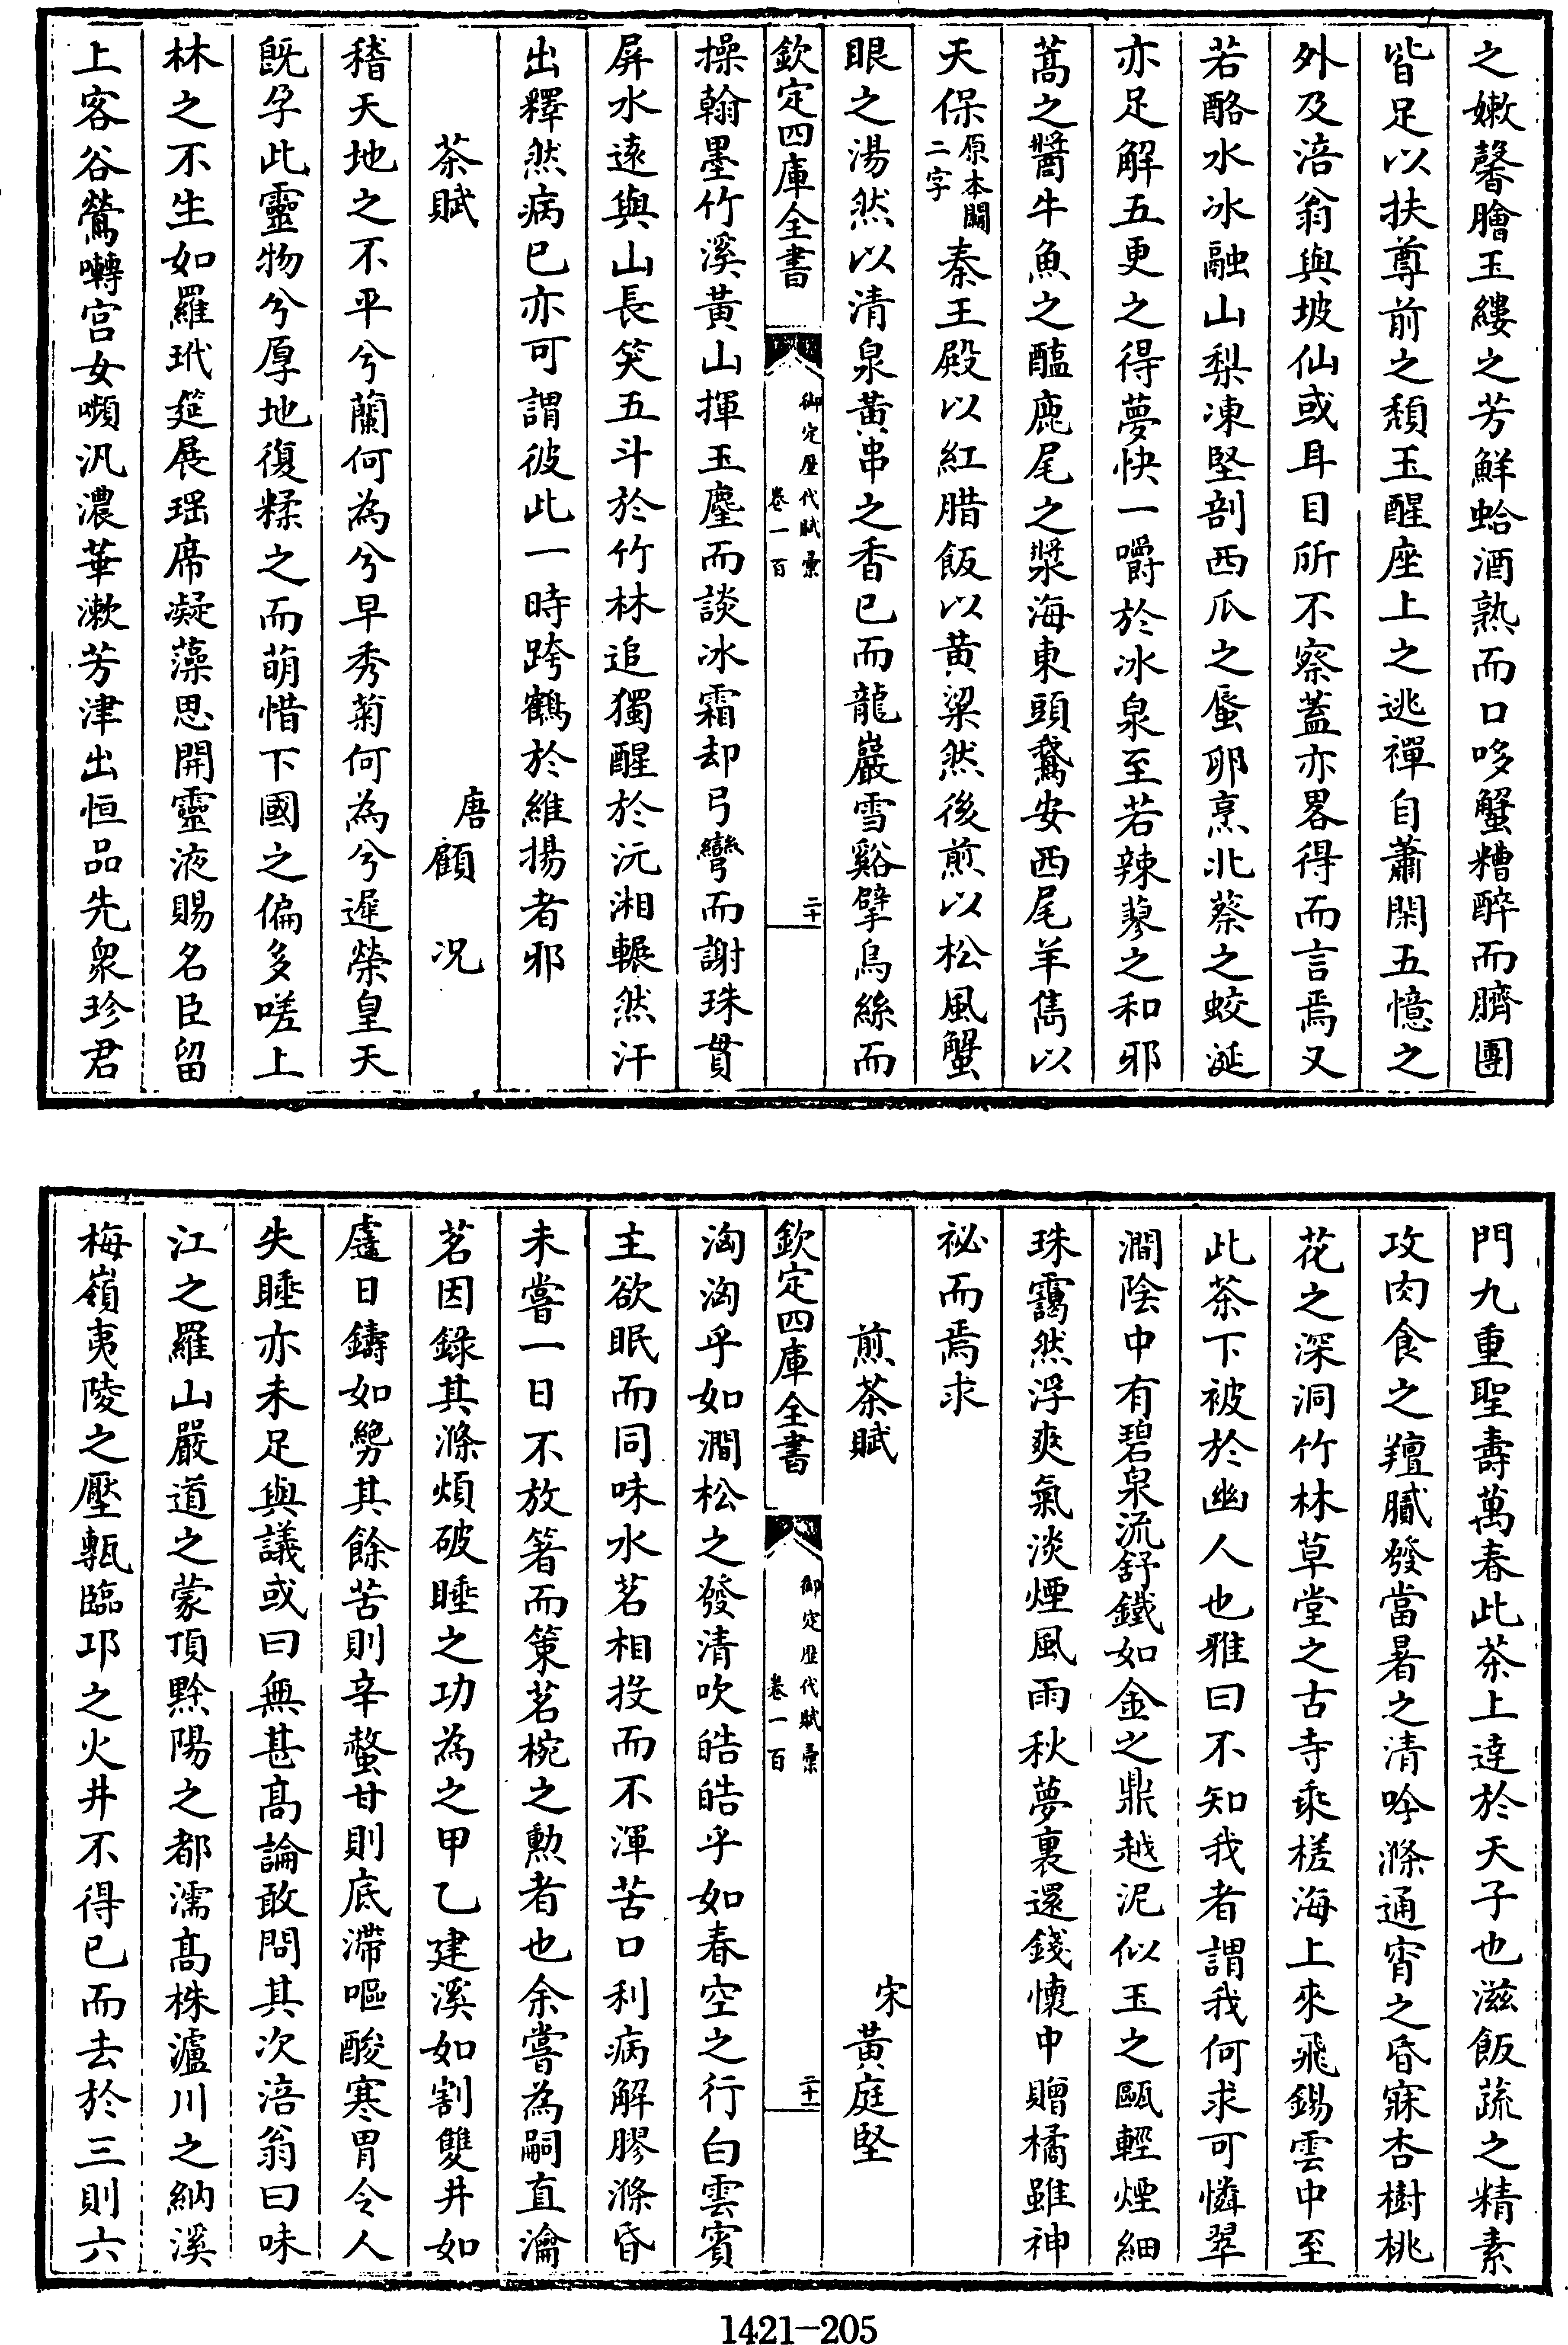 之嫩馨膾玉縷之芳鮮蛤酒熟而口哆蟹糟醉而臍團
皆足以扶尊前之頽玉醒座上之逃禪自蕭閑五憶之
外及涪翁與坡仙或耳目所不察蓋亦畧得而言焉又
若酪水冰融山梨凍堅剖西瓜之蜃卵烹北蔡之蛟涎
亦足解五更之得夢快一嚼於冰泉至若辣蓼之和邪
蒿之醬牛魚之醢鹿尾之漿海東頭鵞安西尾羊雋以
天保原本闕二字秦王殿以紅腊飯以黄粱然後煎以松風蟹
眼之湯然以清泉黄串之香已而龍巖雪谿擘烏絲而
欽定四庫全書
御定歴代賦彙
卷一百
二十
操翰墨竹溪黄山揮玉麈而談冰霜却弓彎而謝珠貫
屏水遠與山長笑五斗於竹林追獨醒於沅湘輾然汗
出釋然病已亦可謂彼此一時跨鶴於維揚者邪
茶賦
唐顧況
稽天地之不平兮蘭何為兮早秀菊何為兮遲榮皇天
既孕此靈物兮厚地復糅之而萌惜下國之偏多嗟上
林之不生如羅玳筵展瑶席凝藻思開靈液賜名臣留
上客谷鶯囀宫女嚬汎濃華漱芳津出恒品先衆珍君
門九重聖壽萬春此茶上達於天子也滋飯蔬之精素
攻肉食之羶膩發當暑之清吟滌通宵之昏寐杏樹桃
花之深洞竹林草堂之古寺乘槎海上來飛錫雲中至
此茶下被於幽人也雅曰不知我者謂我何求可憐翠
澗陰中有碧泉流舒鐵如金之鼎越泥似玉之甌輕煙細
珠靄然浮爽氣淡煙風雨秋夢裏還錢懷中贈橘雖神
祕而焉求
煎茶賦
宋黄庭堅
欽定四庫全書
御定歴代賦彙
卷一百
二十一
洶洶乎如澗松之發清吹皓皓乎如春空之行白雲賓
主欲眠而同味水茗相投而不渾苦口利病解膠滌昏
未嘗一日不放箸而策茗椀之勲者也余嘗為嗣直瀹
茗因錄其滌煩破睡之功為之甲乙建溪如割雙井如
䜩日鑄如㔢其餘苦則辛螫甘則底滯嘔酸寒胃令人
失睡亦未足與議或曰無甚髙論敢問其次涪翁曰味
江之羅山嚴道之蒙頂黟陽之都濡髙株瀘川之納溪
梅嶺夷陵之壓甎臨邛之火井不得已而去於三則六
1421-205